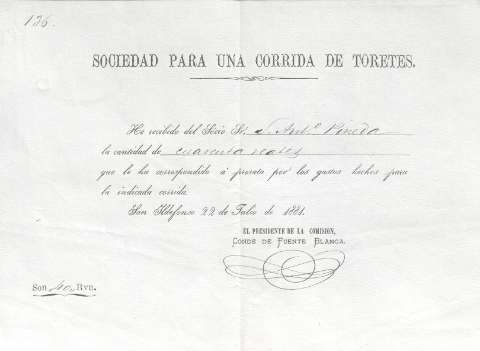 136.
SOCIEDAD PARA UNA CORRIDA DE TORETES.
He recibido del Sócio Sr. D. Antº Pineda
la cantidad de cuarenta reales
que le ha correspondido á prorata por los gastos hechos para
la indicada corrida.
San Ildefonso 22 de Julio de 1881.
EL PRESIDENTE DE LA COMISION,
CONDE DE FUENTE BLANCA.
Son 40 Rvn.